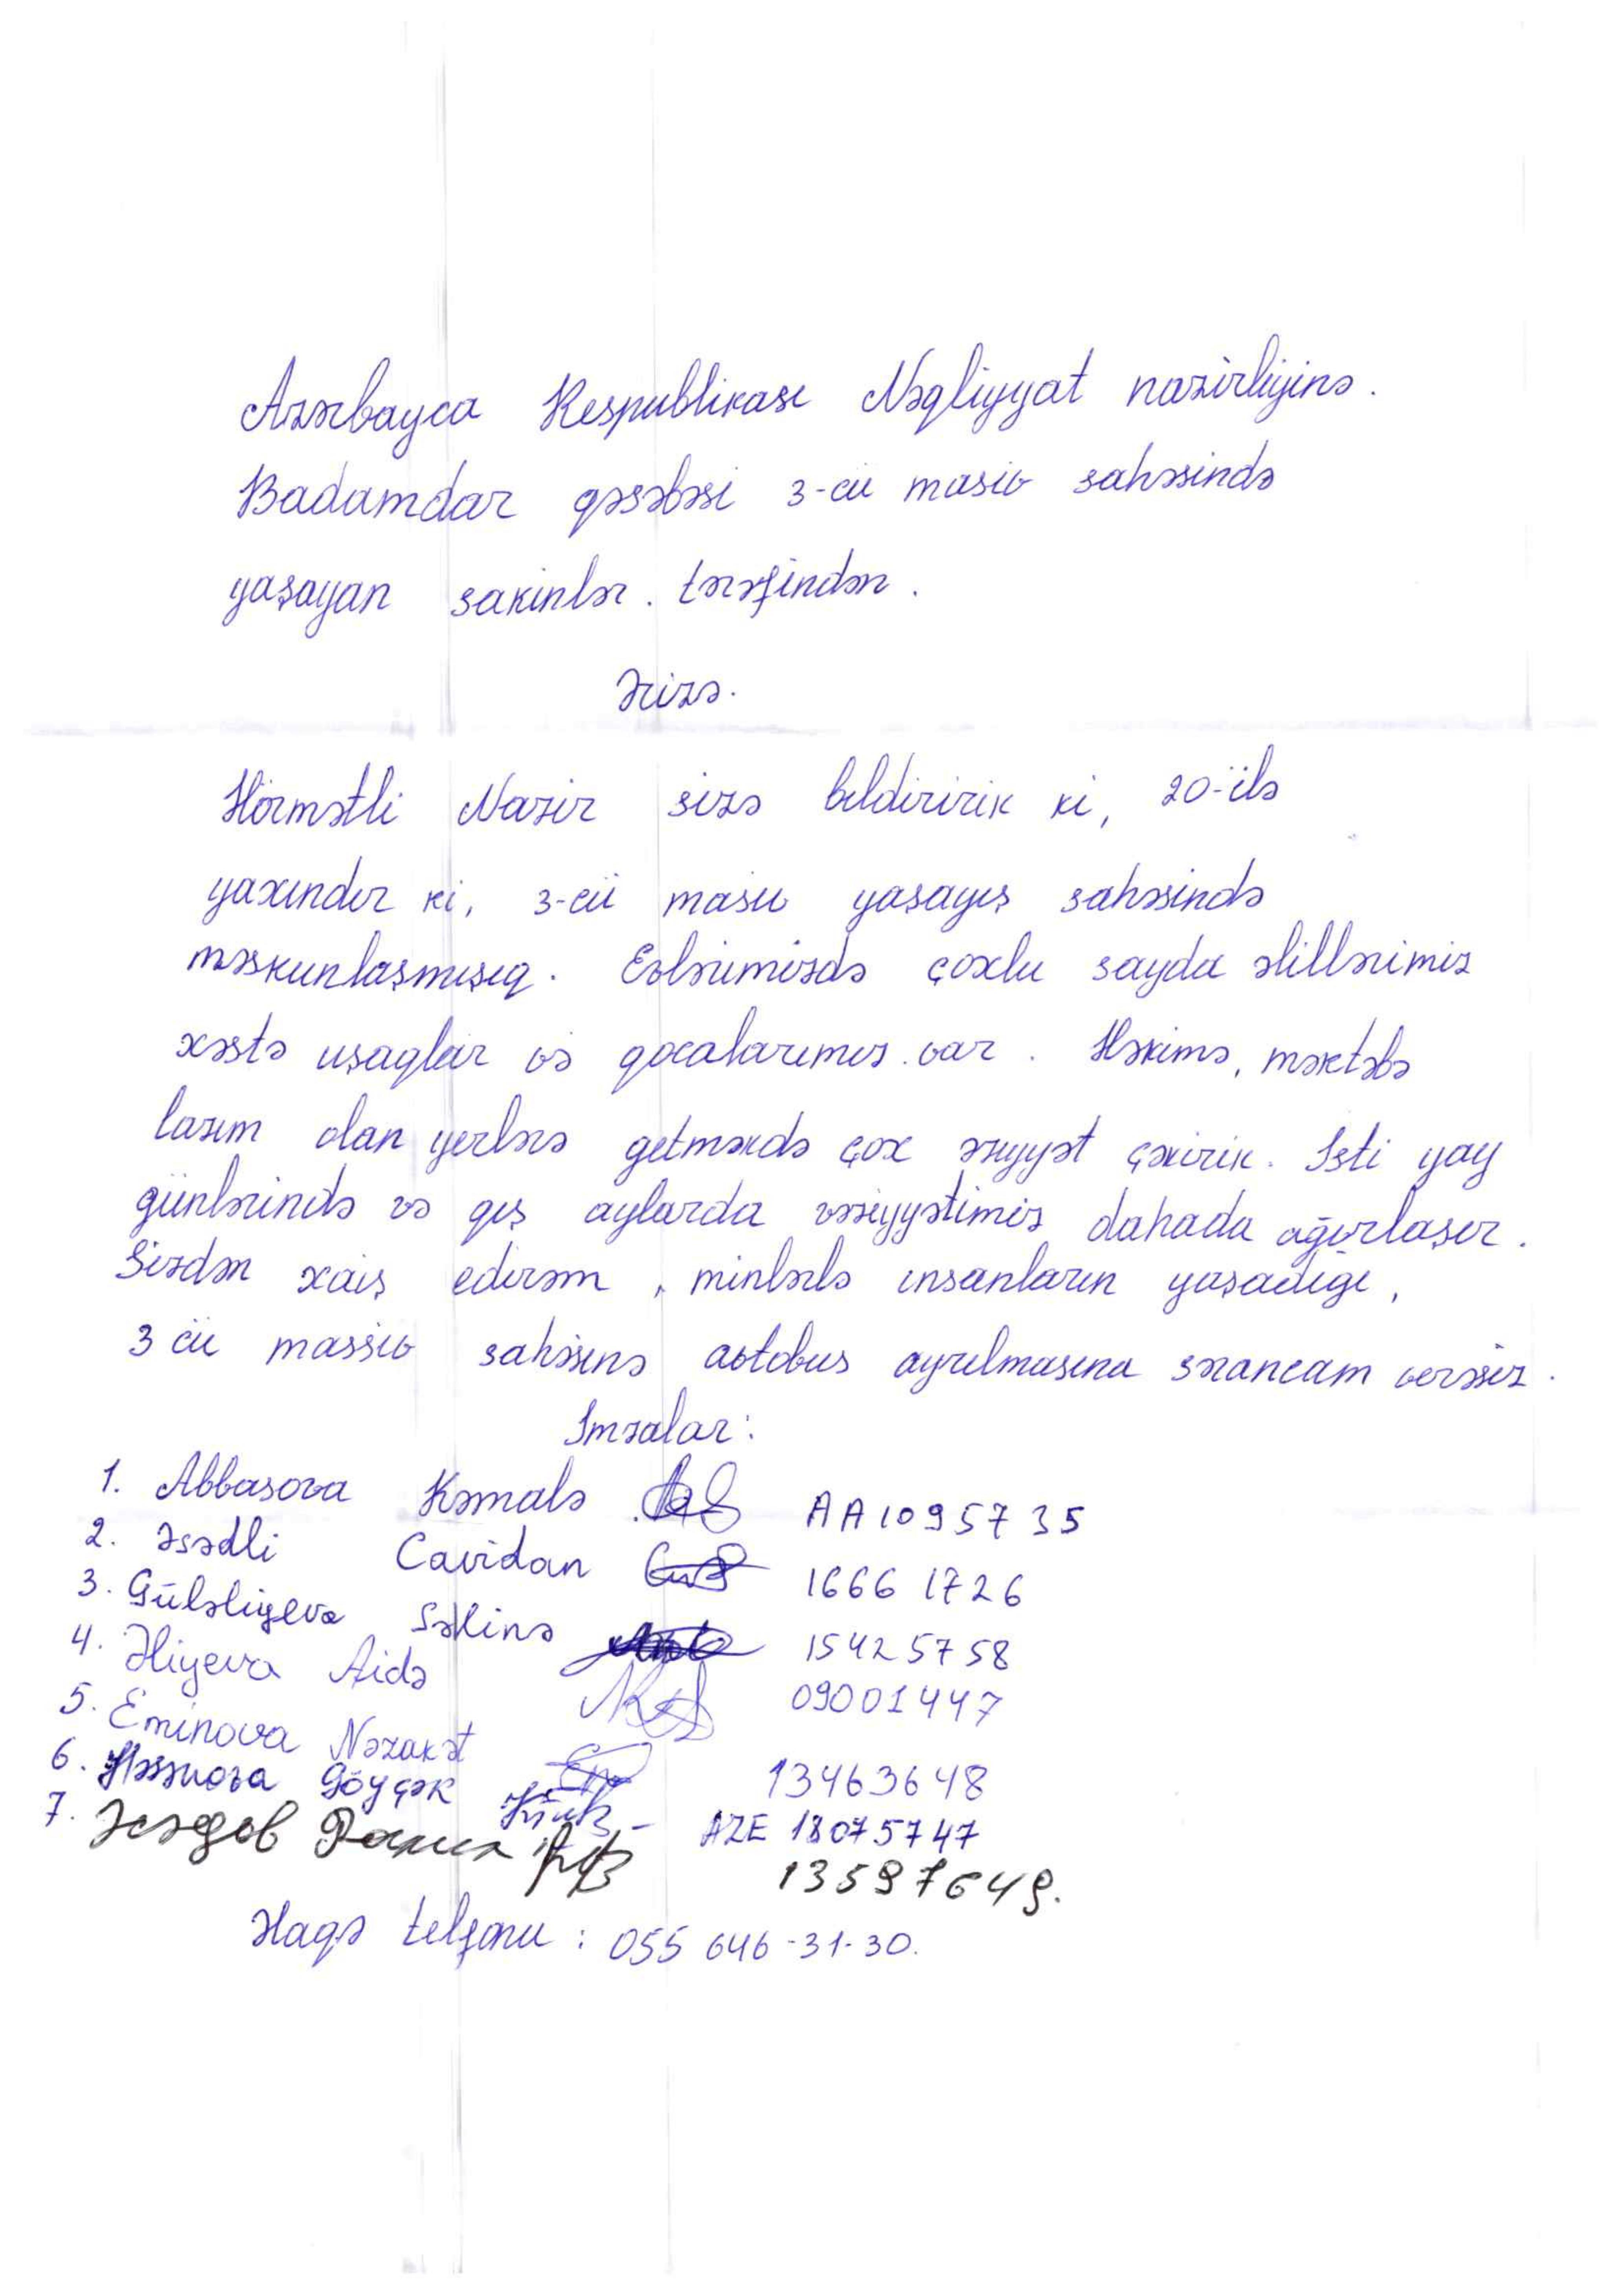 Azərbayca Respublikası Nəqliyyat nazirliyinə.
Badamdar qəsəbəsi 3-cü masiv sahəsində
yaşayan sakinlər. tərəfindən.
Ərizə.
Hörmətli Nazir sizə bildiririk ki, 20-ilə
yaxındır ki, 3-cü masiv yaşayış sahəsində
məskunlaşmışıq. Evlərimizdə çoxlu sayda əlillərimiz
xəstə uşaqlar və qocalarımız. var. Həkimə, məktəbə
lazım olan yerlərə getməkdə çox əziyyət çəkirik. İsti yay
günlərində və qış aylarda vəziyyətimiz dahada ağırlaşır.
Sizdən xaiş edirəm, minlərlə insanların yaşadığı,
3 cü massiv sahəsinə avtobus ayrılmasına sərəncam verəsiz.
İmzalar:
1. Abbasova Kəmalə AA1095735
2. Əsədli Cavidan 16661726
3. Güləliyeva Səkinə 15425758
4. Əliyeva Aidə 09001447
5. Eminova Nəzakət 13463648
6. Həsənova Göyçək AZE 18075747
7. Әсәдов 13597649.
Əlaqə telfonu: 055 646-31-30.